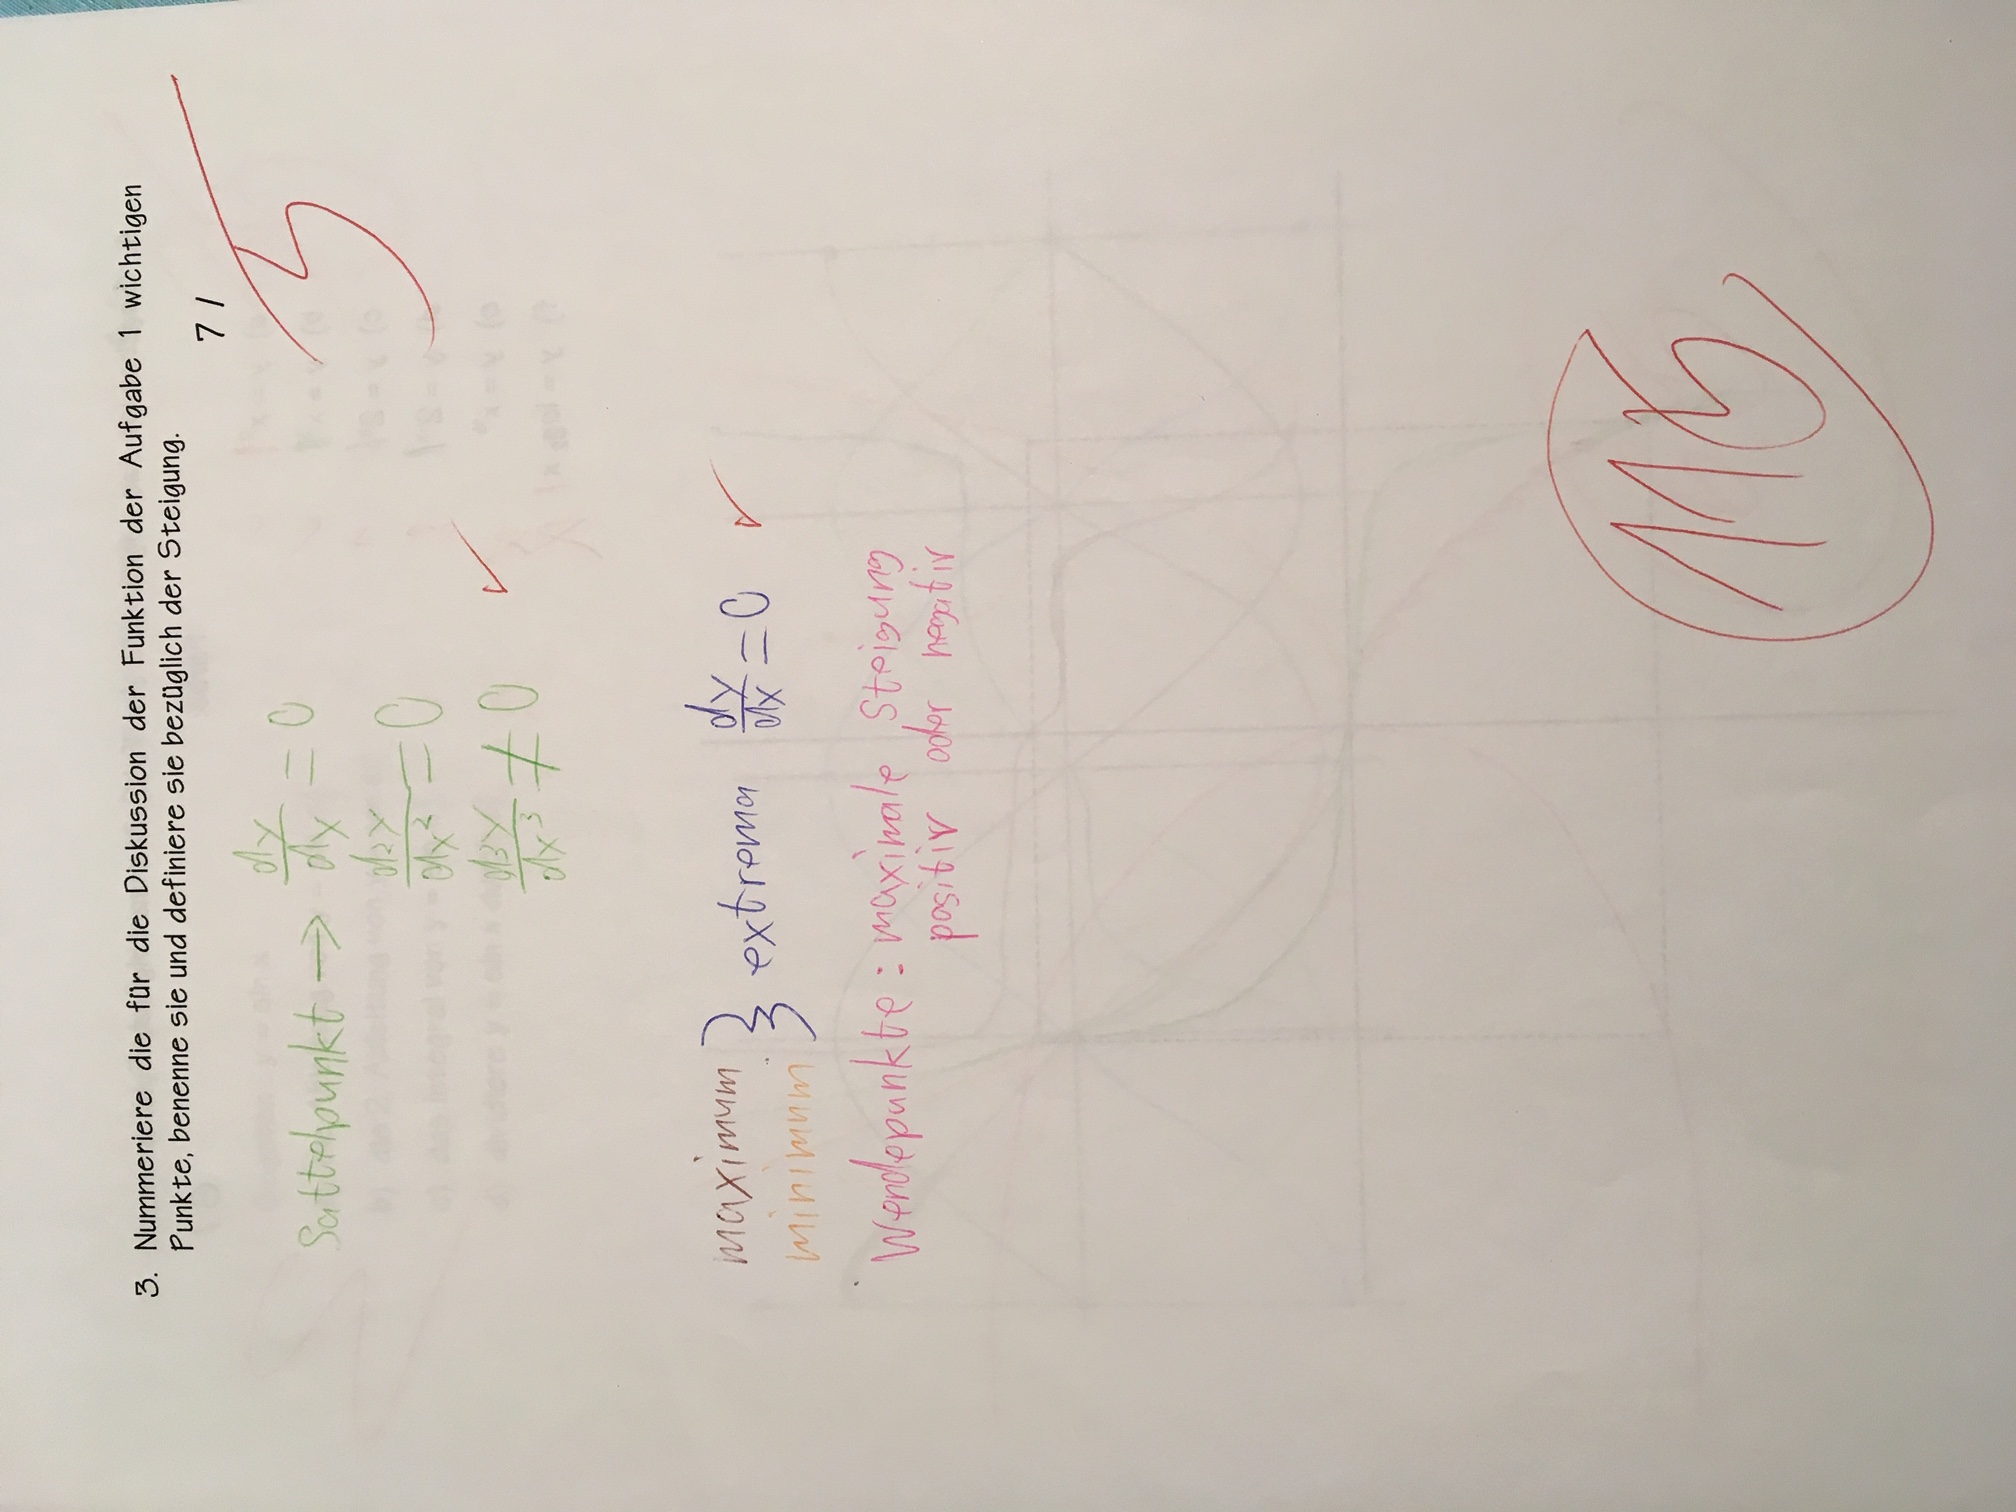 3. Nummeriere die für die Diskussion der Funktion der Aufgabe 1 wichtigen
Punkte, benenne sie und definiere sie bezüglich der Steigung.
7 /
5
Sattelpunkt → dy/dx = 0
d2y/dx² = 0
d3y/dx³ ≠ 0 ✓
maximum
minimum } extrema dy/dx = 0 ✓
Wendepunkte: maximale Steigung
positiv oder negativ
115